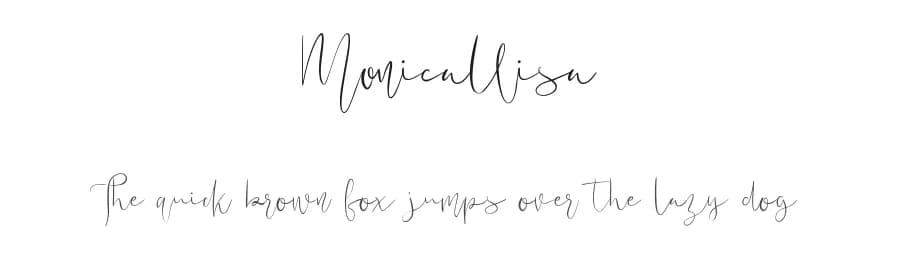 Monicallisa
The quick brown fox jumps over the lazy dog